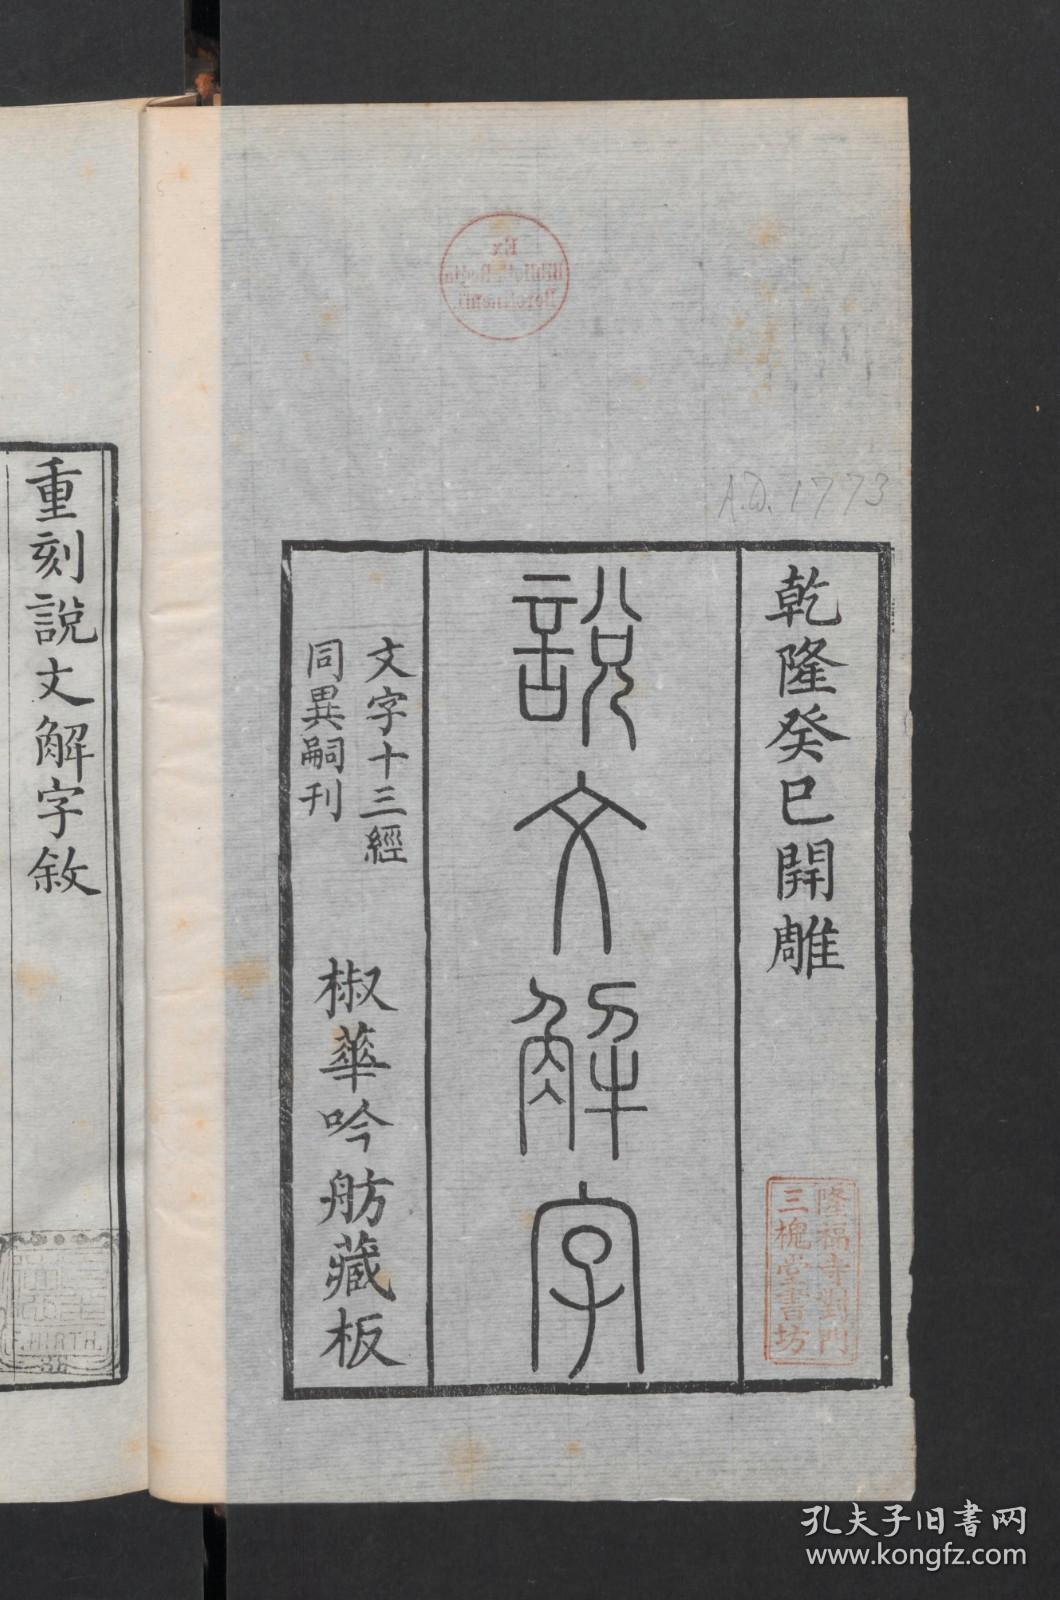 A.D. 1773
乾隆癸巳開雕
說文解字
文字十三經
同異嗣刊
椒華吟舫藏板
隆福寺對門
三槐堂書坊
重刻說文解字敘
F. HIRTH.
38
Ex
孔夫子旧书网
www.kongfz.com